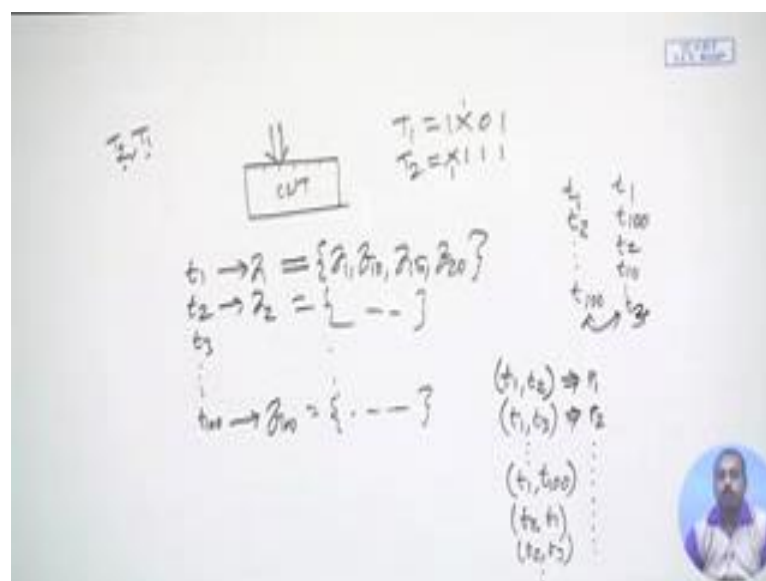 T₂, T₁
CUT
T₁ = 1X01
T₂ = X111
1
1
t₁
t₂
⋮
t₁₀₀
t₁
t₁₀₀
t₂
t₁₀
t₁ → z₁ = {z₁, z₁₀, z₁₅, z₂₀}
t₂ → z₂ = { _ - - }
t₃
⋮
t₁₀₀ → z₁₀₀ = { . - - - }
(t₁, t₂) ⇒ r₁
(t₁, t₃) ⇒ r₂
⋮
(t₁, t₁₀₀)
(t₂, t₁)
(t₂, t₃)
⋮